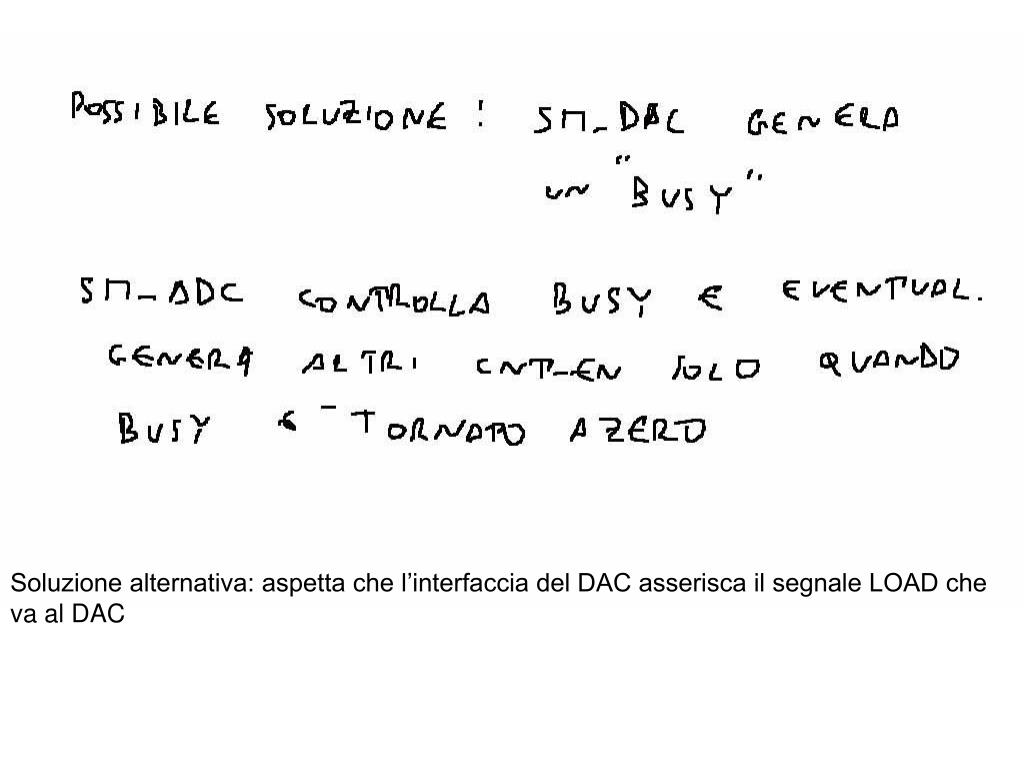 POSSIBILE SOLUZIONE: SM_DAC GENERA
UN "BUSY"
SM_ADC CONTROLLA BUSY E EVENTUAL.
GENERA ALTRI CNT_EN SOLO QUANDO
BUSY E' TORNATO A ZERO
Soluzione alternativa: aspetta che l’interfaccia del DAC asserisca il segnale LOAD che
va al DAC